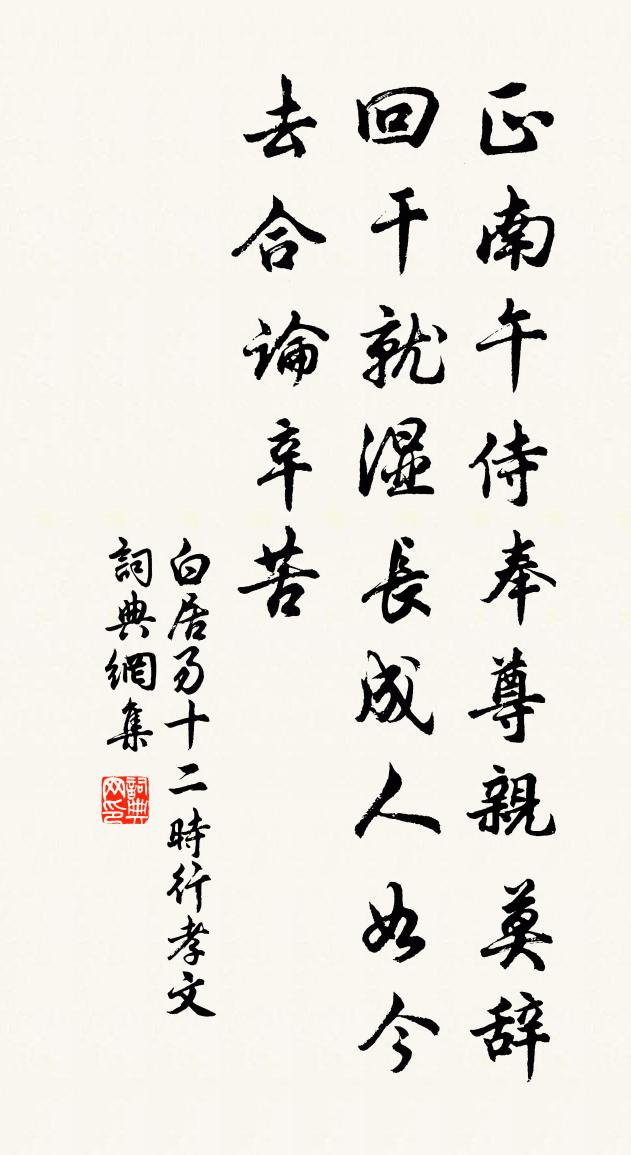 正南午侍奉尊親莫辞
回干就濕長成人如今
去合論辛苦
白居易十二時行孝文
詞典網集
詞典
网印